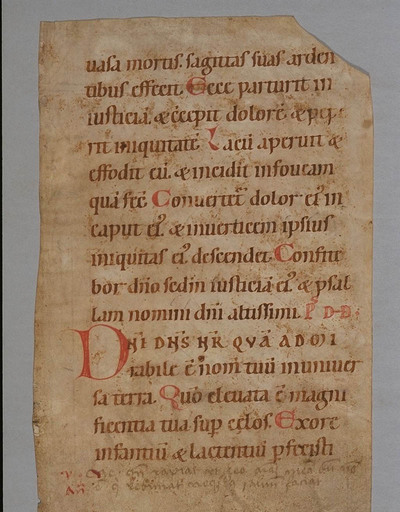 uasa mortis. sagittas suas arden
tibus effecit. Ecce parturit in
iusticiā. & c̄cepit dolorē & pep̱
rit iniquitatē Lacū aperuit &
effodit eū. & incidit in foueam
quā fec̄ Conuertet̄ dolor ei᷒ in
caput ei᷒. & in uerticem ipsius
iniquitas ei᷒ descendet. Confite
bor dn̄o sed̄m iusticiā ei᷒ & psal
lam nomini dn̄i altissimi.
DN̄E DN̄S N̄R̄ QVĀ ADMI
rabile ē nom̄ tuū in uniuer
sa terra. Quō eleuata ē magni
ficentia tua sup̱ celos. Exore
infantiū & lactentiū p̱fecisti